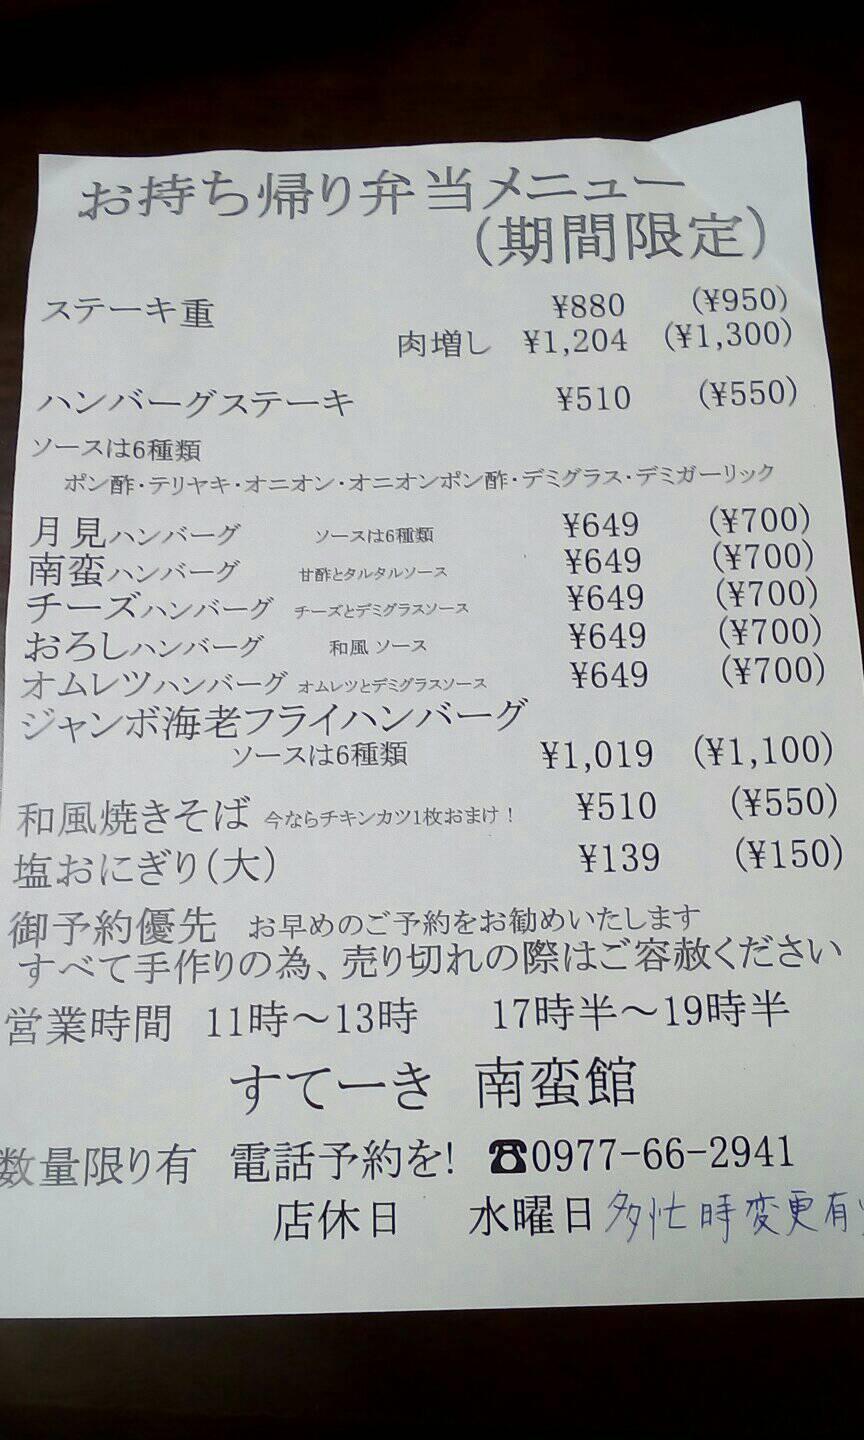 お持ち帰り弁当メニュー
(期間限定)
ステーキ重 ¥880 (¥950)
肉増し ¥1,204 (¥1,300)
ハンバーグステーキ ¥510 (¥550)
ソースは6種類
ポン酢・テリヤキ・オニオン・オニオンポン酢・デミグラス・デミガーリック
月見ハンバーグ ソースは6種類 ¥649 (¥700)
南蛮ハンバーグ 甘酢とタルタルソース ¥649 (¥700)
チーズハンバーグ チーズとデミグラスソース ¥649 (¥700)
おろしハンバーグ 和風 ソース ¥649 (¥700)
オムレツハンバーグ オムレツとデミグラスソース ¥649 (¥700)
ジャンボ海老フライハンバーグ
ソースは6種類 ¥1,019 (¥1,100)
和風焼きそば 今ならチキンカツ1枚おまけ! ¥510 (¥550)
塩おにぎり(大) ¥139 (¥150)
御予約優先 お早めのご予約をお勧めいたします
すべて手作りの為、売り切れの際はご容赦ください
営業時間 11時～13時 17時半～19時半
すてーき 南蛮館
数量限り有 電話予約を! ☎0977-66-2941
店休日 水曜日 多忙時変更有